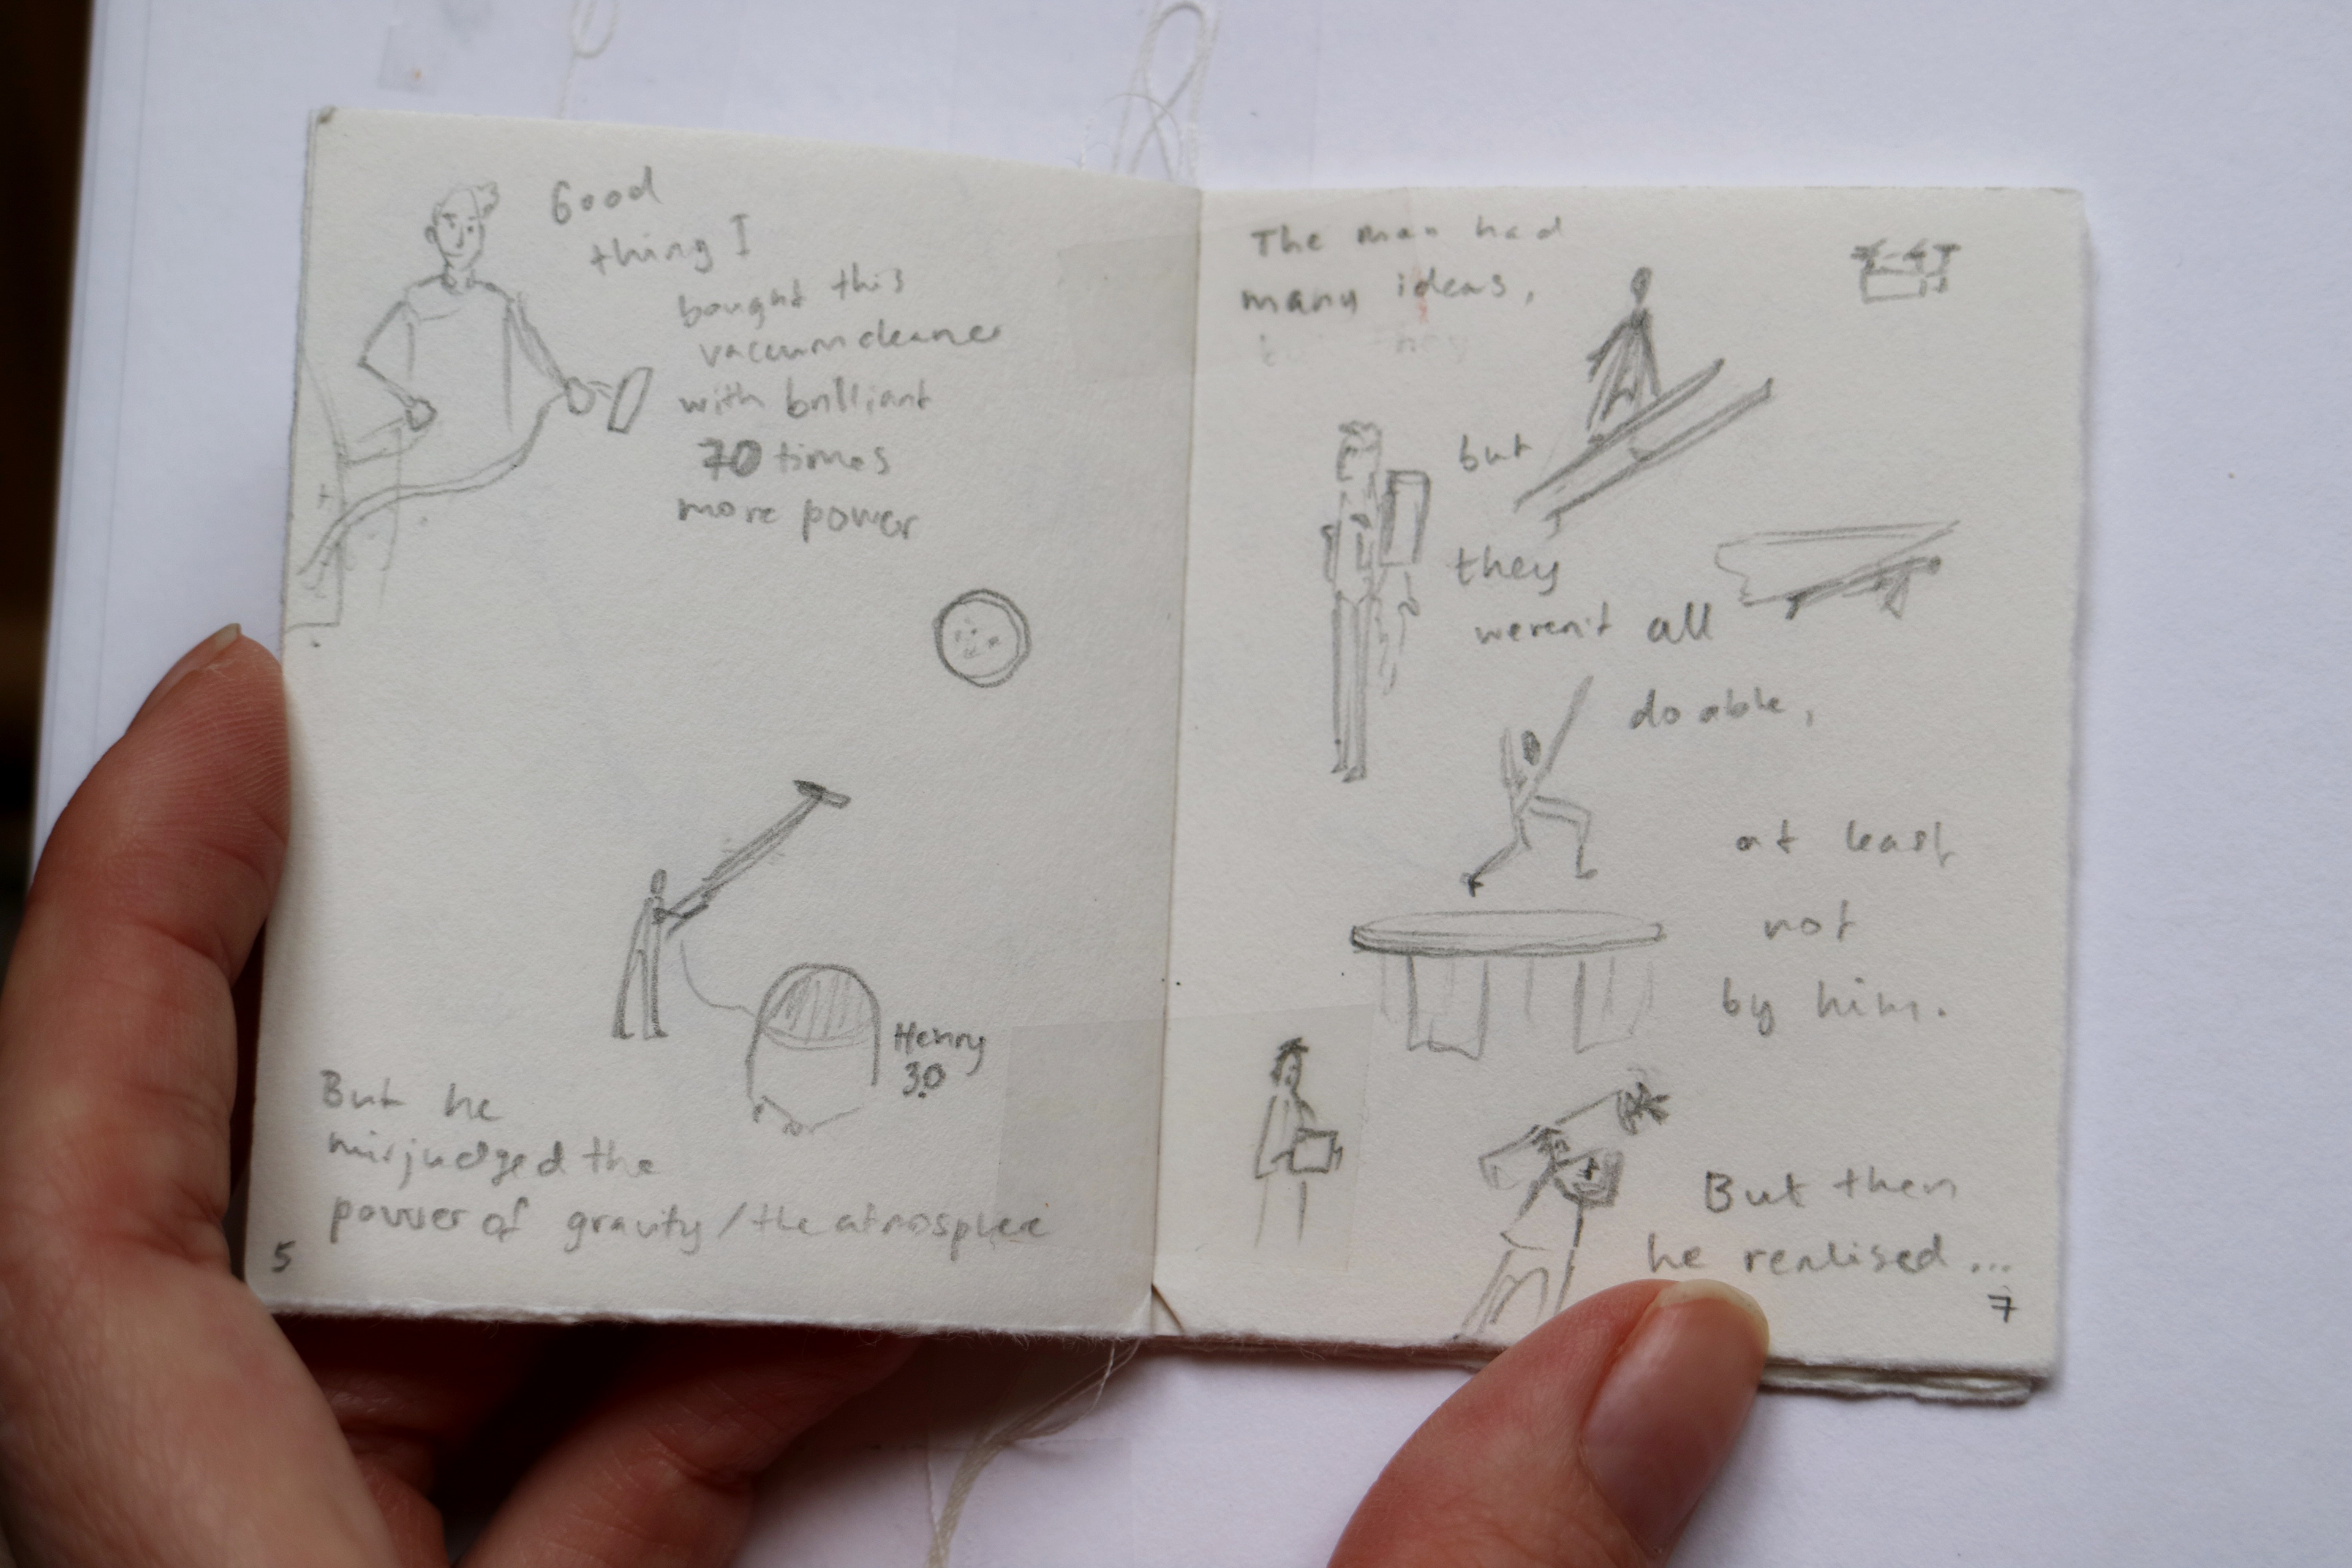 Good
thing I
bought this
vacuumcleaner
with brilliant
70 times
more power
Henry
3.0
But he
misjudged the
power of gravity / the atmosphere
5
The man had
many ideas,
but they
but
they
weren't all
do able,
at least
not
by him.
But then
he realised ...
7